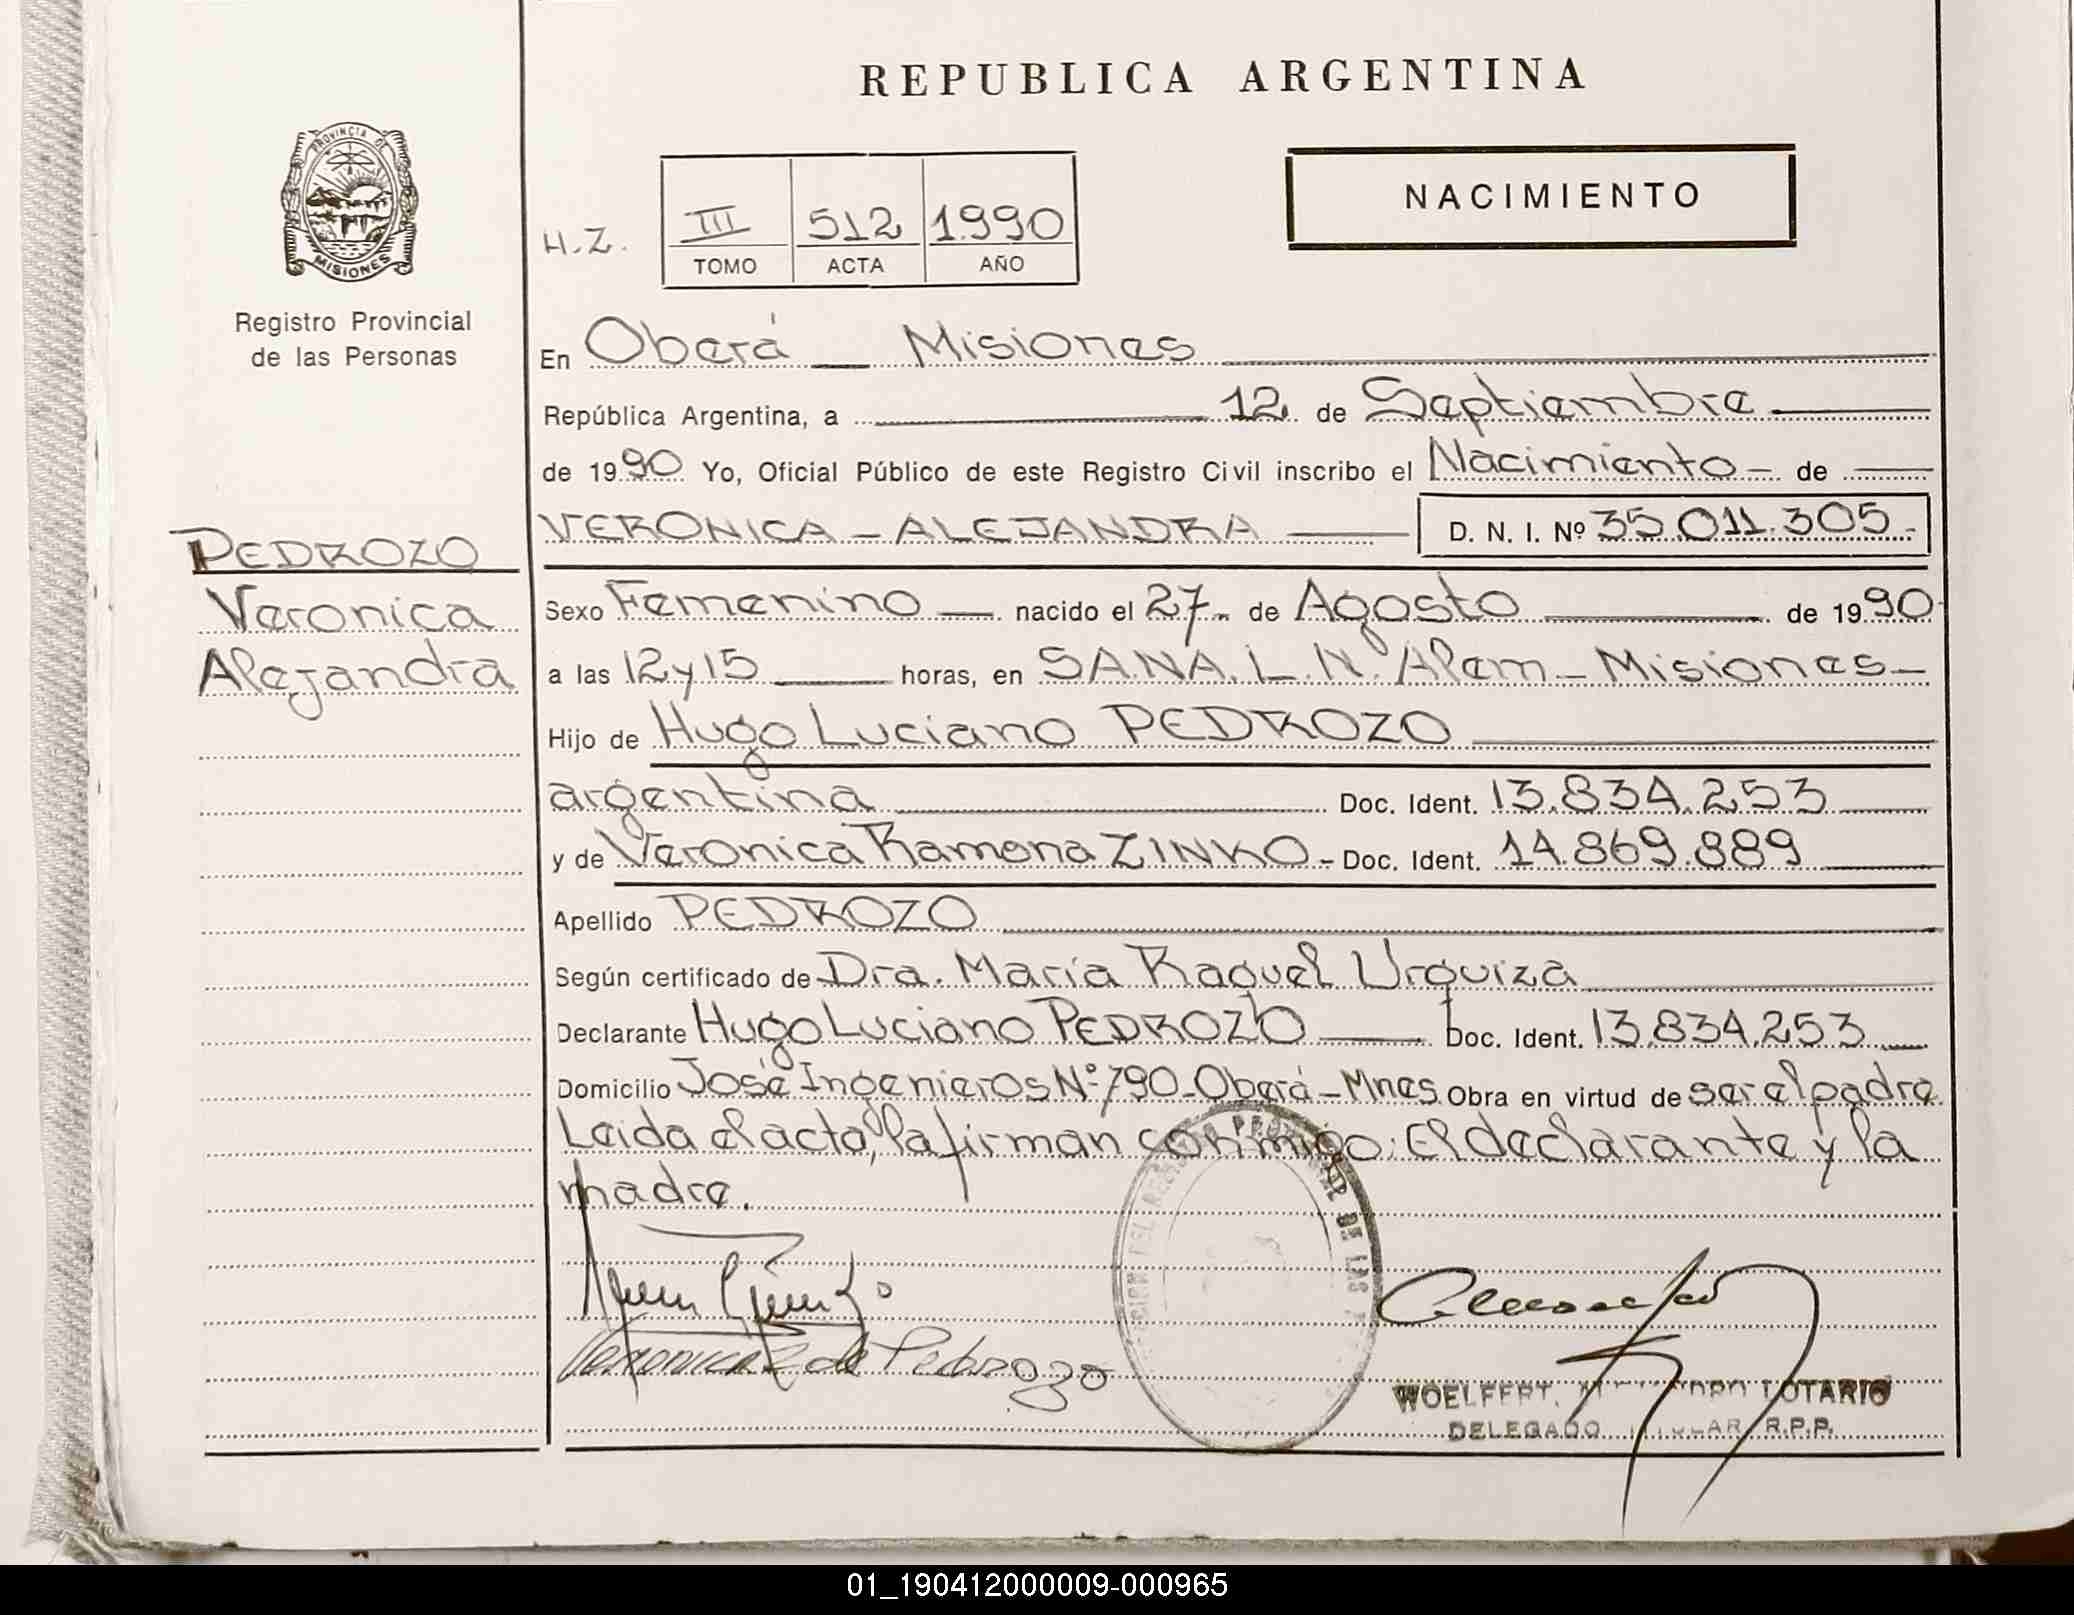 REPUBLICA ARGENTINA
PROVINCIA DE
MISIONES
Registro Provincial
de las Personas
H.Z.
III 512 1990
TOMO ACTA AÑO
NACIMIENTO
En Oberá _ Misiones
República Argentina, a 12 de Septiembre
de 1990 Yo, Oficial Público de este Registro Civil inscribo el Nacimiento - de
VERONICA - ALEJANDRA D. N. I. Nº 35.011.305.-
PEDROZO
Veronica
Alejandra
Sexo Femenino nacido el 27 de Agosto de 1990
a las 12 y 15 horas, en SANA. L. N. Alem - Misiones -
Hijo de Hugo Luciano PEDROZO
argentina Doc. Ident. 13.834.253
y de Veronica Ramona ZINKO - Doc. Ident. 14.869.889
Apellido PEDROZO
Según certificado de Dra. María Raquel Urquiza
Declarante Hugo Luciano PEDROZO Doc. Ident. 13.834.253
Domicilio José Ingenieros Nº 790 - Oberá - Mnes. Obra en virtud de ser el padre
Leida el acta, la firman conmigo: El declarante y la
madre.
de Pedrozo
DE LAS
WOELFERT, LOTARIO
DELEGADO R.P.P.
01_190412000009-000965